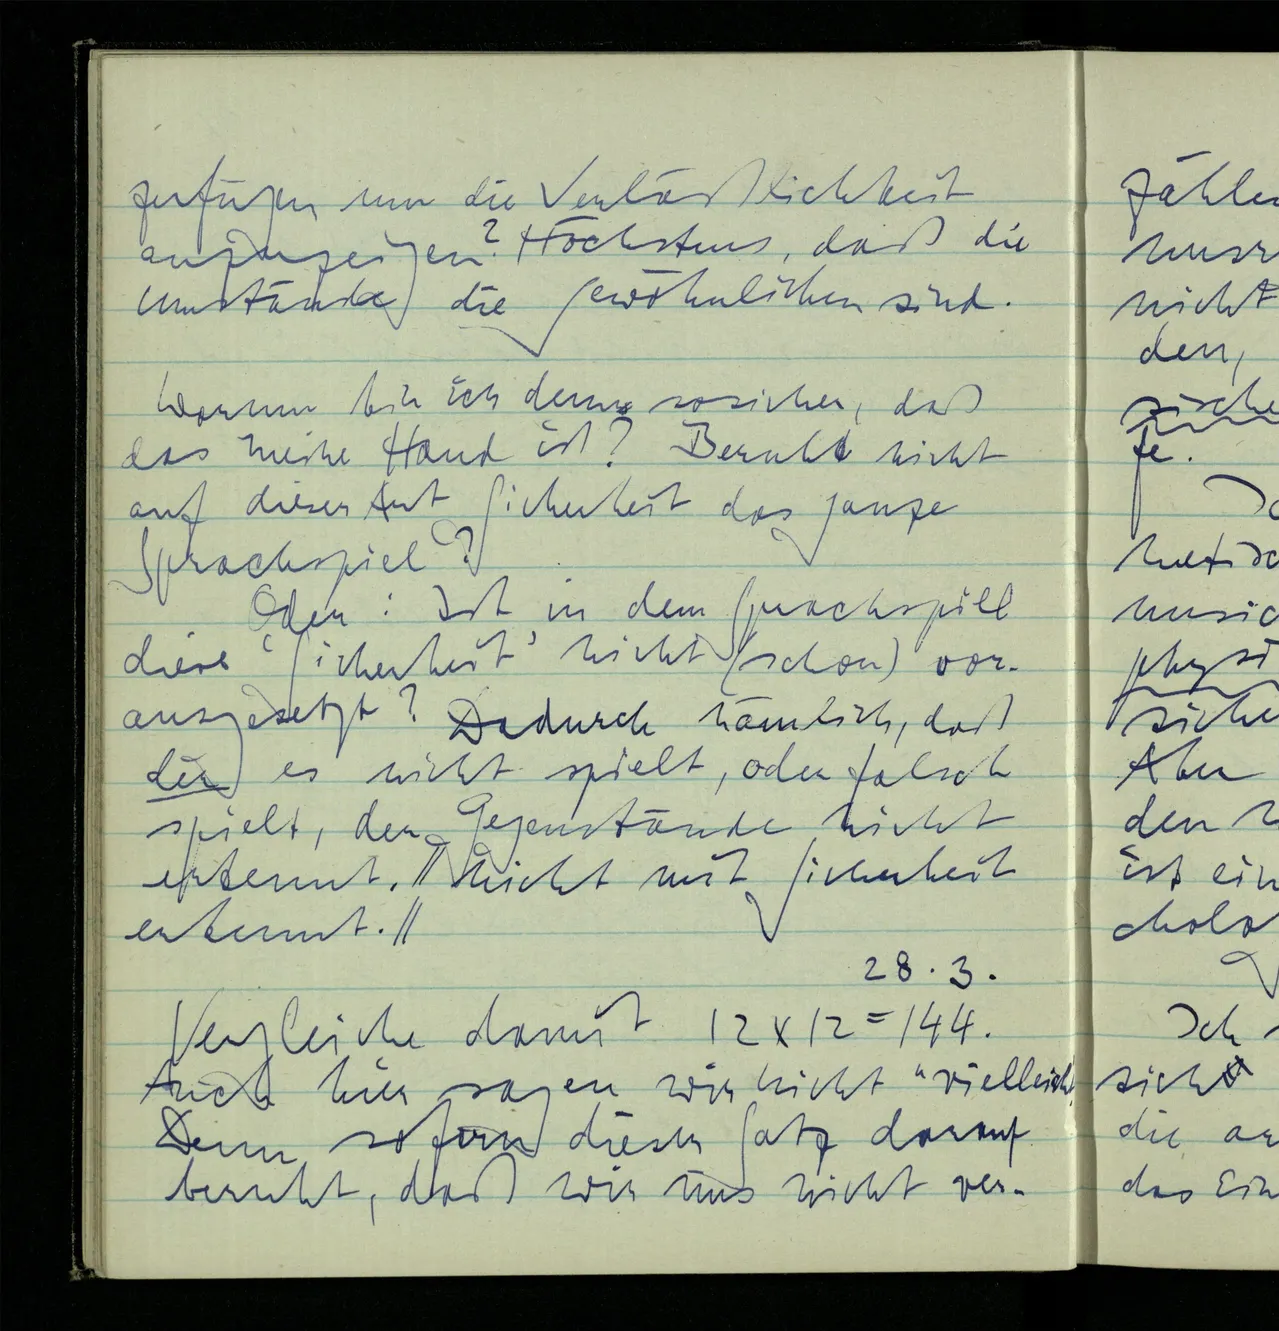 zufügen um die Verläßlichkeit
anzuzeigen? Höchstens, daß die
Umstände die gewöhnlichen sind.
Warum bin ich denn so sicher, daß
das meine Hand ist? Beruht nicht
auf dieser Art Sicherheit das ganze
Sprachspiel?
Oder: Ist in dem Sprachspiel
diese 'Sicherheit' nicht (schon) vor-
ausgesetzt? Dadurch nämlich, daß
der es nicht spielt, oder falsch
spielt, der Gegenstände nicht
erkennt. // nicht mit Sicherheit
erkennt. //
28.3.
Vergleiche damit 12×12=144.
Auch hier sagen wir nicht "vielleicht".
Denn sofern dieser Satz darauf
beruht, daß wir uns nicht ver-
zähle
unsr
nicht
den,
sische
Ic
metisc
physi
siche
Aber
den
ist ein
cholo
Ich
sich
die an
das Ein